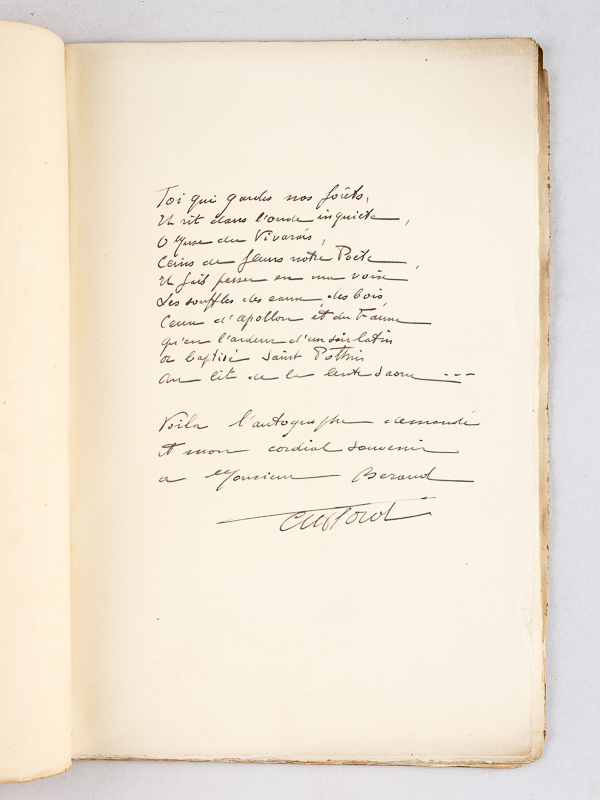 Toi qui gardes nos forêts,
Et rit dans l'onde inquiète,
O Muse du Vivarais,
Ceins de fleurs notre Poète,
Et fais passer en ma voix
Les souffles des eaux, des bois,
Ceux d'Apollon et du Faune
qu'en l'ardeur d'un soir latin
a baptisé Saint Pothin
au lit de la lente Saone ---
Voila l'autographe demandé
et mon cordial souvenir
a Monsieur Beraud